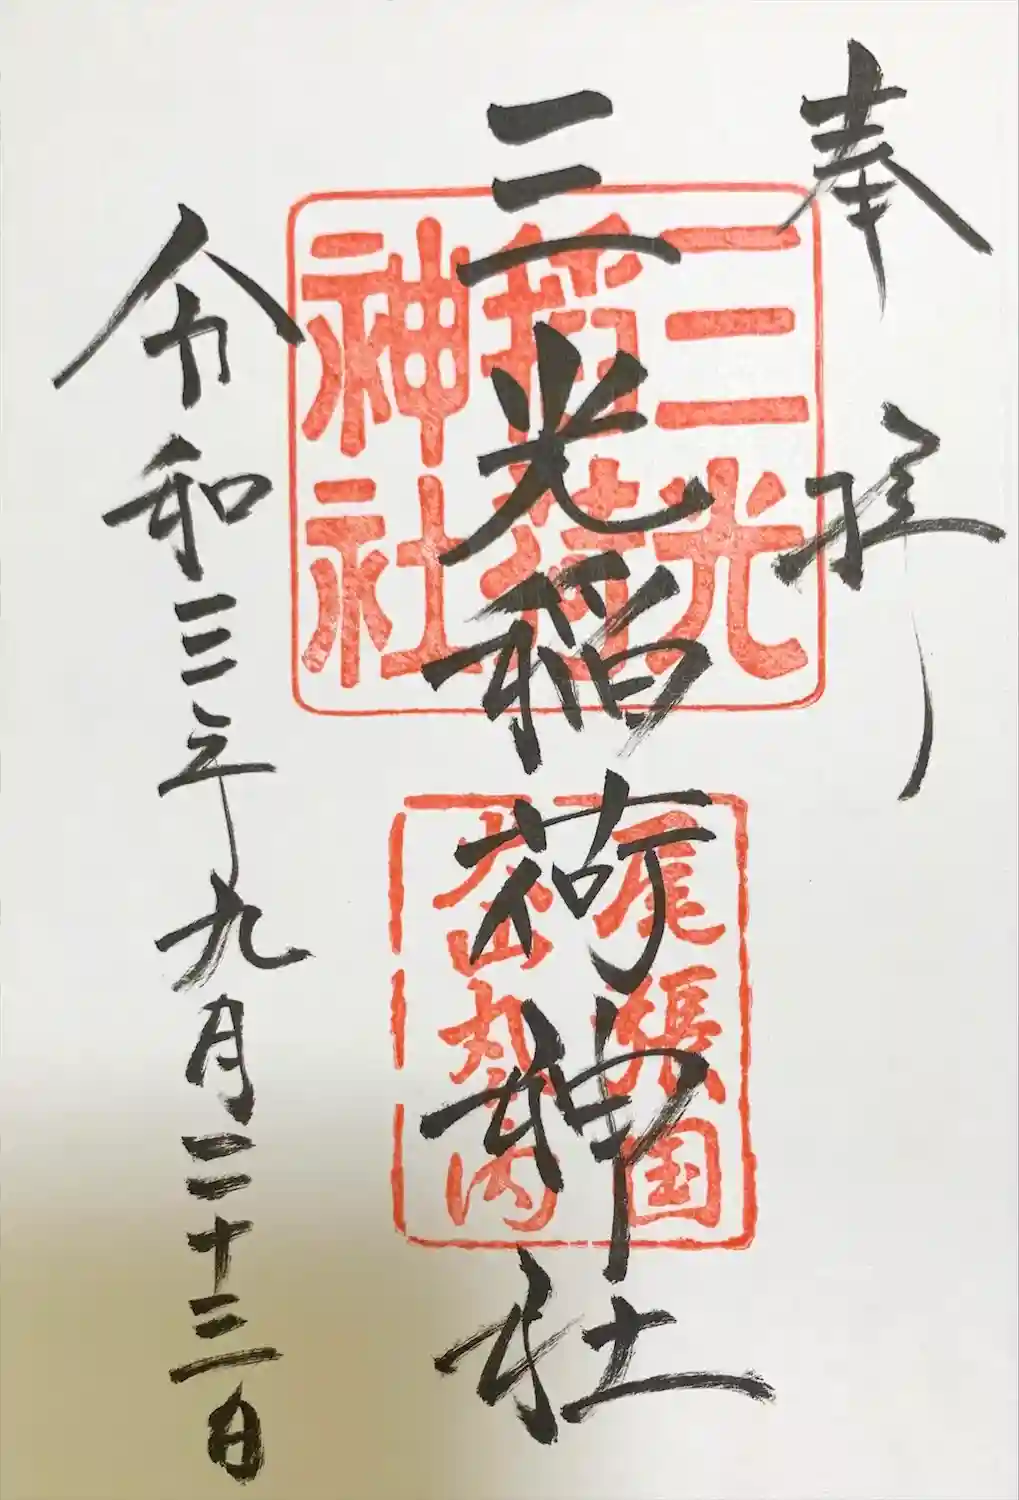 奉拝
三光稲荷神社
令和三年九月二十三日
三光
稲荷
神社
尾張国
犬山丸の内